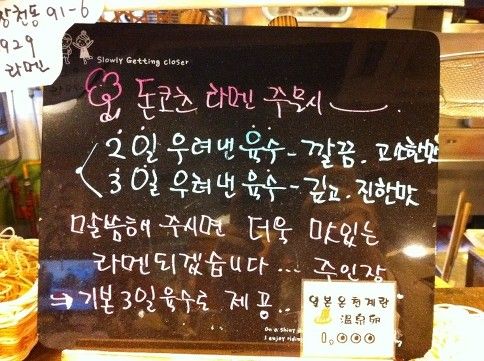 상천동 91-6
929
라멘
Slowly Getting closer
돈코츠 라멘 주문시
2일 우려낸 육수 - 깔끔. 고소한맛
3일 우려낸 육수 - 깊고. 진한맛
말씀해 주시면 더욱 맛있는
라멘되겠습니다... 주인장
↳ 기본 3일 육수로 제공..
일본 온천계란
温泉卵
1,000
On a Shiny
I enjoy ridin